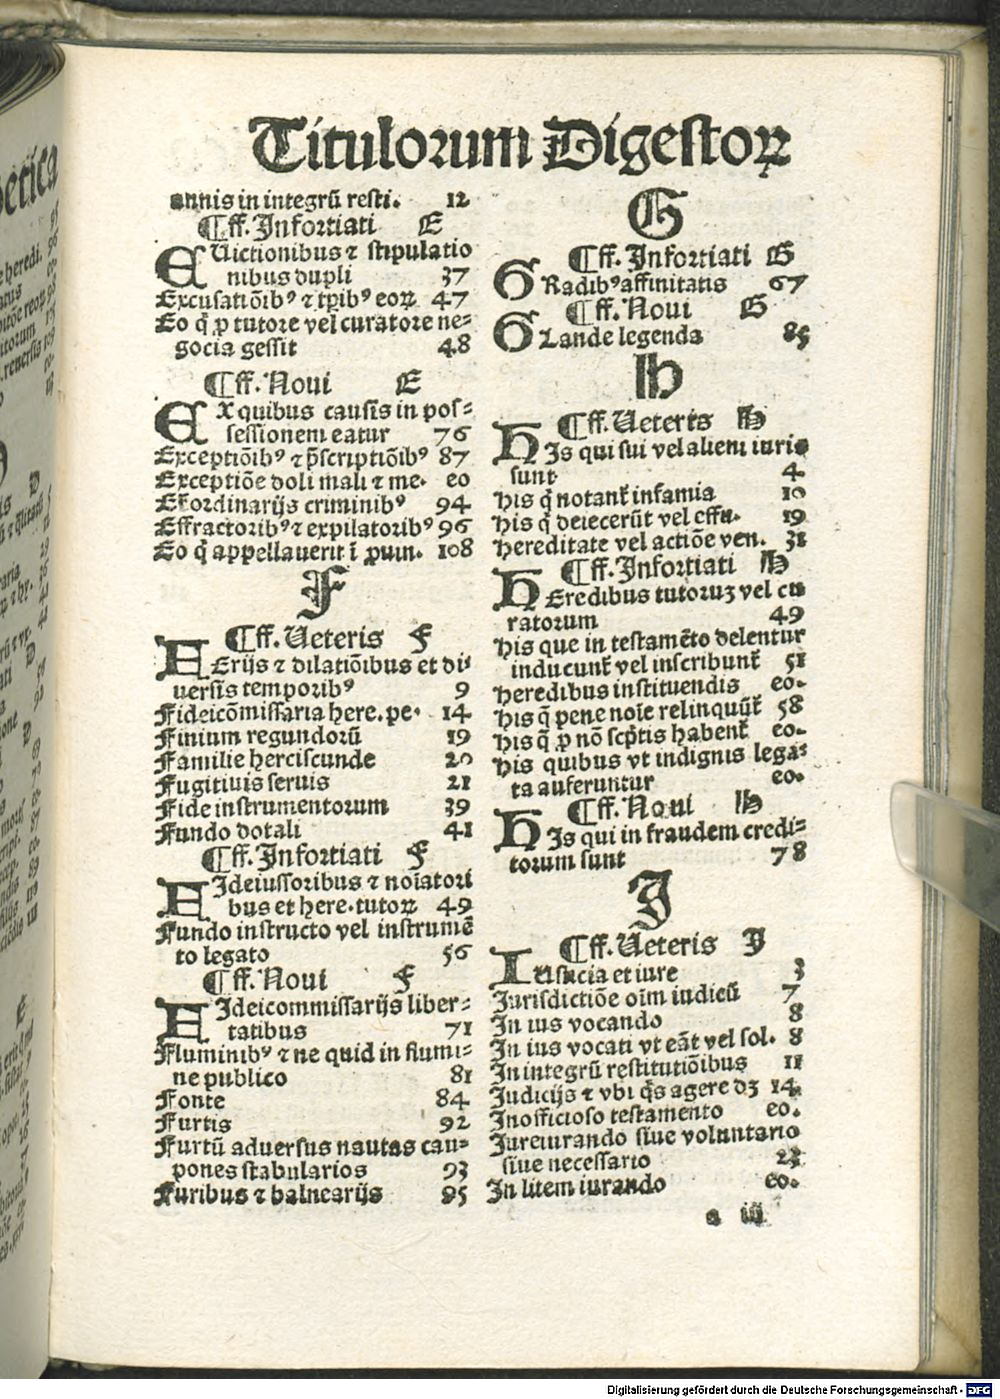 Titulorum Digestoꝝ
annis in integrū resti. 12
¶ff. Infortiati E
EUictionibus ⁊ stipulatio
nibus dupli 37
Excusatiōibꝰ ⁊ tp̄ibꝰ eoꝝ 47
Eo q̄ ꝓ tutore vel curatore ne⸗
gocia gessit 48
¶ff. Noui E
EX quibus causis in pos⸗
sessionem eatur 76
Exceptiōibꝰ ⁊ p̄scriptiōibꝰ 87
Exceptiōe doli mali ⁊ me. eo
Extͣordinarijs criminibꝰ 94
Effractoribꝰ ⁊ expilatoribꝰ 96
Eo q̄ appellauerit ī ꝓuin. 108
F
¶ff. Ueteris F
FErijs ⁊ dilatiōibus et di
uersis temporibꝰ 9
Fideicōmissaria here. pe. 14
Finium regundorū 19
Familie herciscunde 20
Fugitiuis seruis 21
Fide instrumentorum 39
Fundo dotali 41
¶ff. Infortiati F
FIdeiussoribus ⁊ noīatori
bus et here. tutoꝝ 49
Fundo instructo vel instrumē
to legato 56
¶ff. Noui F
FIdeicommissarijs liber⸗
tatibus 71
Fluminibꝰ ⁊ ne quid in flumi⸗
ne publico 81
Fonte 84
Furtis 92
Furtū aduersus nautas cau⸗
pones stabularios 93
Furibus ⁊ balnearijs 95
G
¶ff. Infortiati G
GRadibꝰ affinitatis 67
¶ff. Noui G
GLande legenda 85
H
¶ff. Ueteris H
HIs qui sui vel alieni iuris
sunt 4
His q̄ notant̄ infamia 10
His q̄ deiecerūt vel effu. 19
Hereditate vel actiōe ven. 31
¶ff. Infortiati H
HEredibus tutoruꝫ vel cu
ratorum 49
His que in testamēto delentur
inducunt̄ vel inscribunt̄ 51
Heredibus instituendis eo.
His q̄ pene noīe relinquūt̄ 58
His q̄ ꝓ nō scp̄tis habent̄ eo.
His quibus vt indignis lega⸗
ta auferuntur eo.
¶ff. Noui H
HIs qui in fraudem credi⸗
torum sunt 78
J
¶ff. Ueteris J
IUsticia et iure 3
Jurisdictiōe oīm iudicū 7
In ius vocando 8
In ius vocati vt eāt vel sol. 8
In integrū restitutiōibus 11
Judicijs ⁊ vbi q̄s agere dꝫ 14
Inofficioso testamento eo.
Jureiurando siue voluntario
siue necessario 23
In litem iurando eo.
a iij
Digitalisierung gefördert durch die Deutsche Forschungsgemeinschaft - DFG